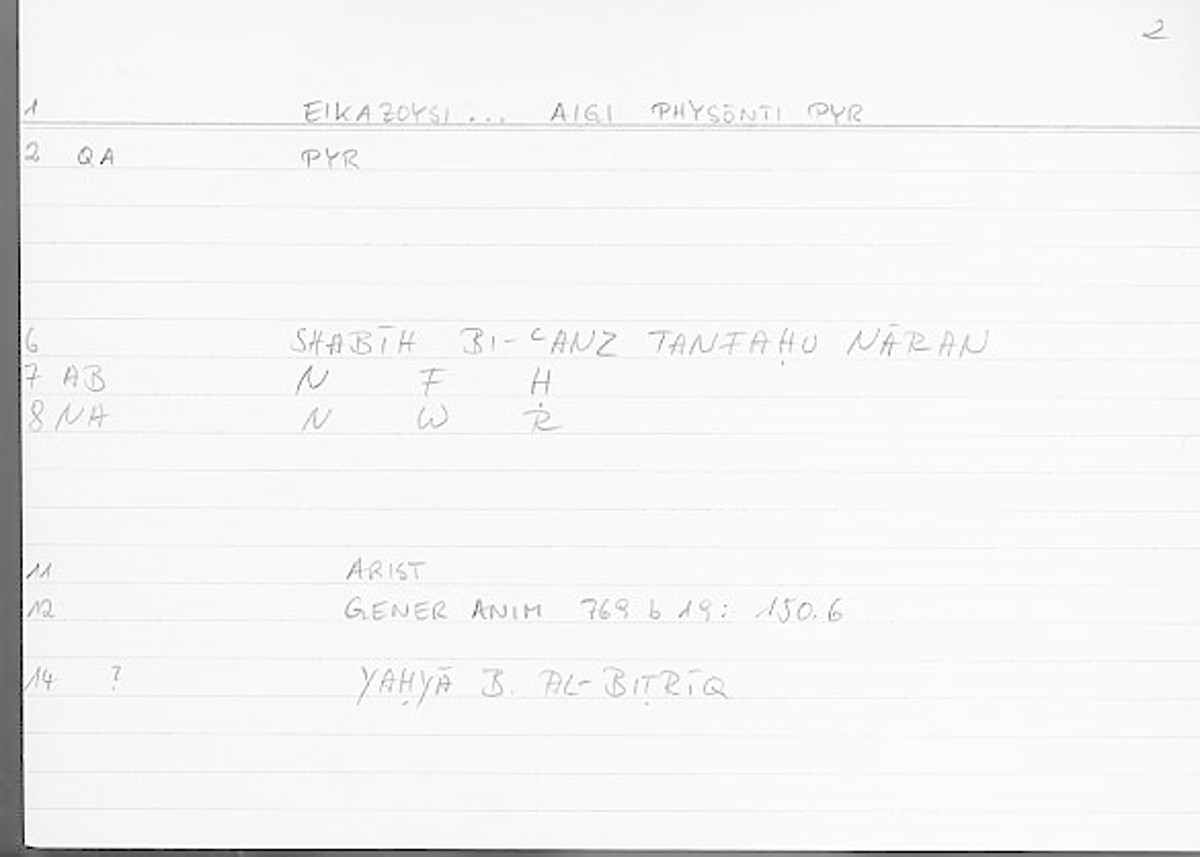 2
1 EIKAZOYSI ... AIGI PHYSŌNTI PYR
2 QA PYR
6 SHABĪH BI-ʿANZ TANFAḤU NĀRAN
7 AB N F Ḥ
8 NA N W R
11 ARIST
12 GENER ANIM 769 b 19: 150.6
14 ? YAḤYĀ B. AL-BIṬRĪQ